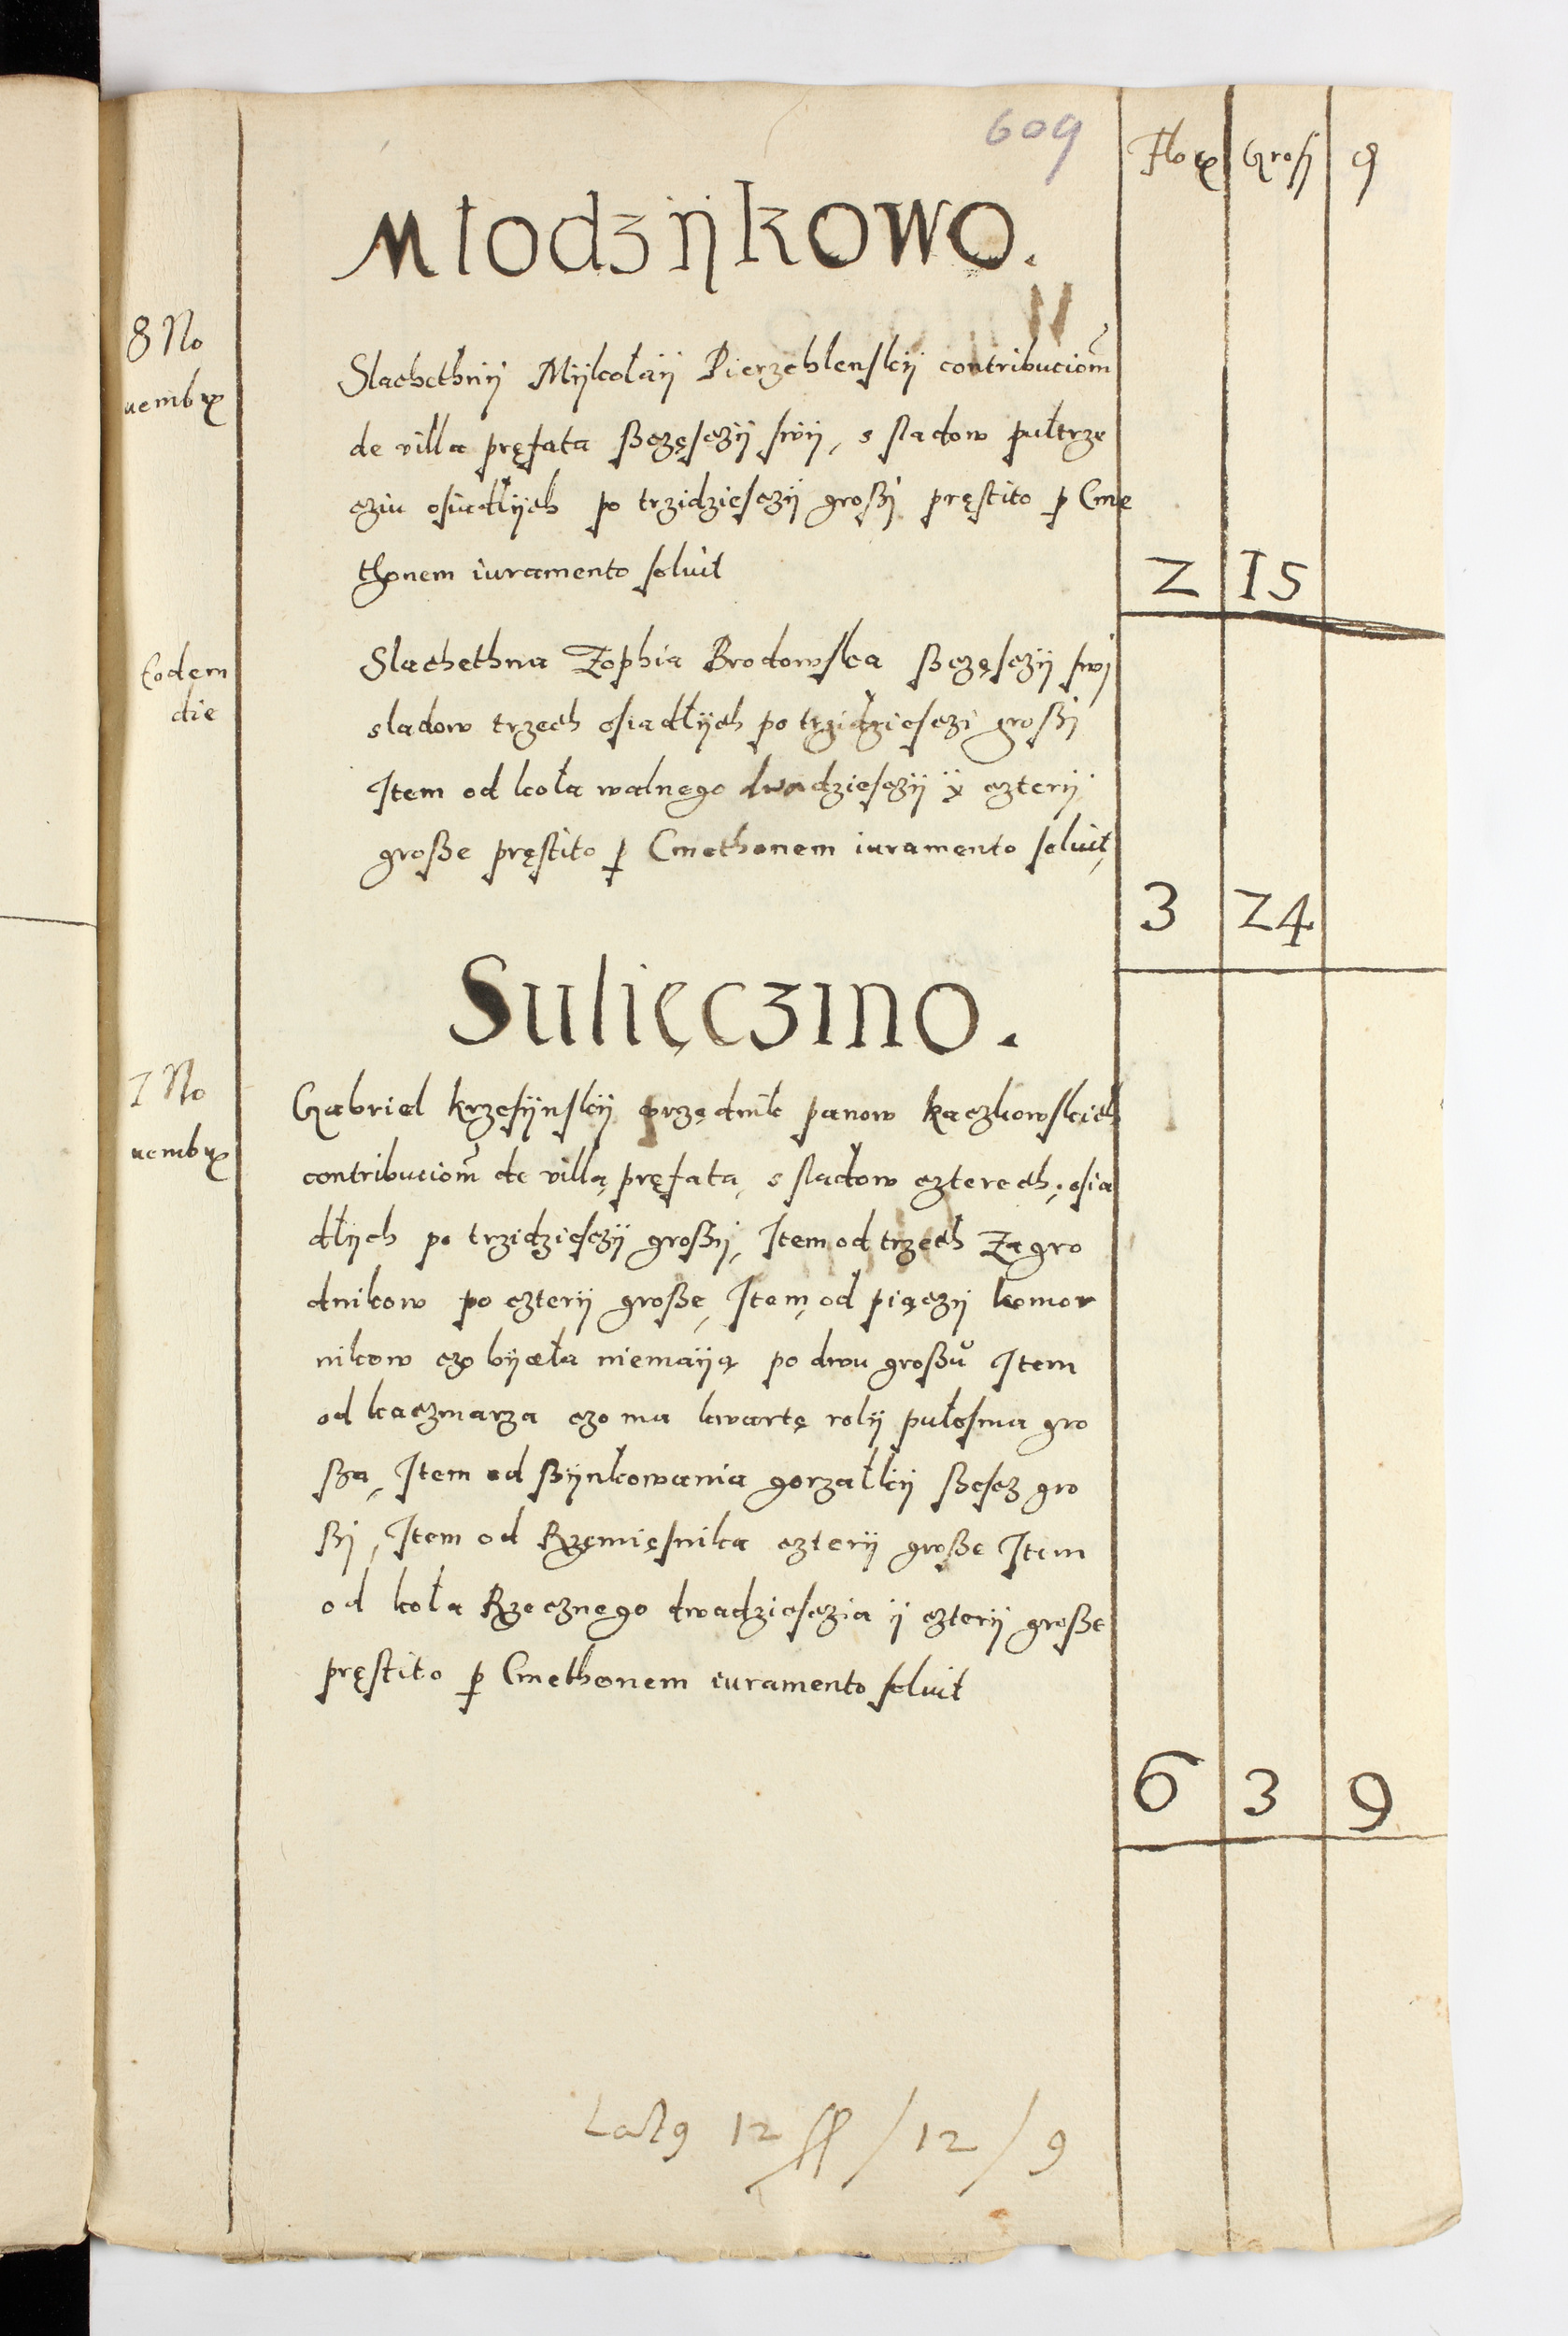 609
Flor Gross ꝯ
Młodzÿkowo.
8 No
uembr
Slachethnÿ Mÿkołaÿ Pierzchlenskÿ contribucionem
de villa pręfata ßczęsczÿ swÿ, s sladow pułtrze
cziu osiadłÿch po trzidziesczÿ großÿ pręstito ꝑ Cme
thonem iuramento soluit
2 15
Eodem
die
Slachethna Zophia Brodowska ßczęsczÿ swÿ
sladow trzech osiadłÿch po trzidziesczi großÿ
Item od koła walnego dwadziesczÿ ÿ czterÿ
große pręstito ꝑ Cmethonem iuramento soluit
3 24
Sulięczino.
7 No
uembr
Gabriel krzesÿnskÿ urzędnik panow kaczkowskich
contribucionem de villa pręfata, s sladow czterech, osia
dłÿch po trzidziesczÿ großÿ, Item od trzech Zagro
dnikow po czterÿ große, Item od pięczÿ komor
nikow czo bÿdła niemaÿą po dwu großu Item
od kaczmarza czo ma kwartę rolÿ pułosma gro
ßa, Item od ßÿnkowania gorzałkÿ ßescz gro
ßÿ, Item od Rzęmięsnika czterÿ große Item
od koła Rzecznego dwadziesczia ÿ czterÿ große
pręstito ꝑ Cmethonem iuramento soluit
6 3 9
Latꝯ 12 ff / 12 / 9